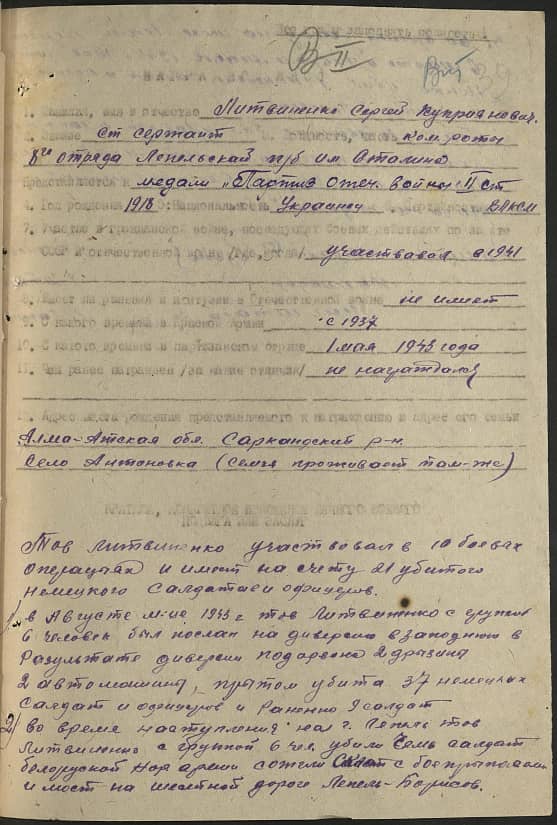 В II
1. Фамилия, имя и отчество Литвиненко Сергей Куприянович
2. Звание ст сержант 3. Должность, часть Ком. роты
отряда Лепельской п/б им. Сталина
представляется к медали "Партиз Отеч. войны" II ст
4. Год рождения 1918 5. Национальность Украинец ВЛКСМ
7. Участие в гражданской войне, последующих боевых действиях по защите
СССР и отечественной войне /где, когда/ участвовал с 1941
8. Имеет ли ранения и контузии в Отечественной войне не имеет
9. С какого времени в Красной Армии с 1937
10. С какого времени в партизанском отряде 1 мая 1943 года
11. Чем ранее награжден /за какие отличия/ не награждался
12. Адрес места рождения представляемого к награждению и адрес его семьи
Алма-Атская обл. Саркандский р-н.
Село Антоновка (семья проживает там-же)
КРАТКОЕ, КОНКРЕТНОЕ ИЗЛОЖЕНИЕ ЛИЧНОГО БОЕВОГО
ПОДВИГА ИЛИ ЗАСЛУГ
Тов Литвиненко участвовал в 10 боевых
операциях и имеет на счету 21 убитого
немецкого солдата и офицеров.
1) в Августе м-це 1943 г тов Литвиненко с групой
6 человек был послан на диверсию в
Результате диверсии подорвано 2 дрезины
2 автомашины, притом убита 37 немецких
Солдат и офицеров и Ранено 9 солдат
2) во время наступления на г. Лепель тов
Литвиненко с групой 6 чел. убили Семь солдат
белоруской Нар армии сожгли с боеприпасами
и мост на шосейной дороге Лепель-Борисов.